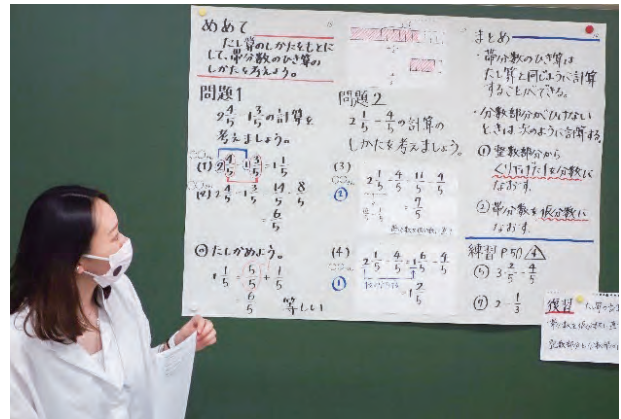 めあて
たし算のしかたをもとに
して、帯分数のひき算の
しかたを考えよう。
問題1
2 4/5 - 1 3/5 の計算を
考えましょう。
(1) 2 4/5 - 1 3/5 = 1 1/5
(2) 2 4/5 - 1 3/5 = 14/5 - 8/5
= 6/5
たしかめよう。
1 1/5 = 5/5 + 1/5
= 6/5 等しい
問題2
2 1/5 - 4/5 の計算の
しかたを考えましょう。
(3)
2 1/5 - 4/5 = 11/5 - 4/5
②
= 7/5
(4)
2 1/5 - 4/5 = 1 6/5 - 4/5
①
= 1 2/5
まとめ
・帯分数のひき算は
たし算と同じように計算
することができる。
・分数部分がひけない
ときは次のように計算する。
① 整数部分から
くり下げた1を分数に
なおす。
② 帯分数を仮分数に
なおす。
練習 P.50 4
⑤ 3 2/5 - 4/5
2 - 1/3
復習